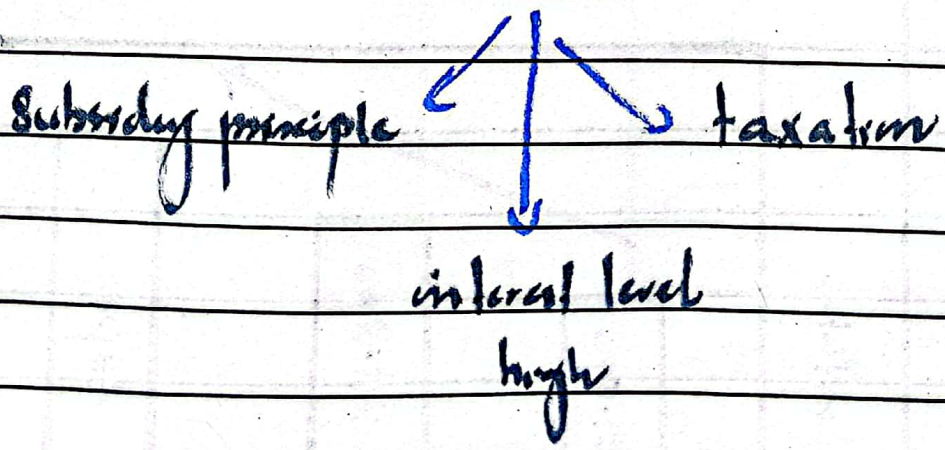 Subsidy principle
taxation
interest level
high